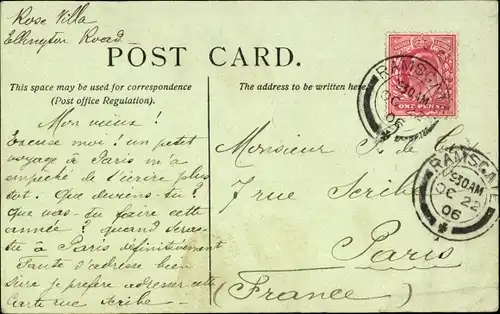 Rose Villa
Ellington Road
POST CARD.
This space may be used for correspondence
(Post office Regulation).
The address to be written here
Mon vieux!
Excuse moi! un petit
voyage à Paris m'a
empeché de t'écrire plus
tôt. Que deviens-tu?
Que vas-tu faire cette
année? Quand seras-
tu à Paris définitivement
Faute d'adresse bien
sure je préfère adresser cette
Carte rue Scribe-
Monsieur F. de
7 rue Scribe
Paris
(France)
ONE PENNY
RAMSGATE
9.30AM
OC
06
RAMSGATE
9.30AM
OC 22
06